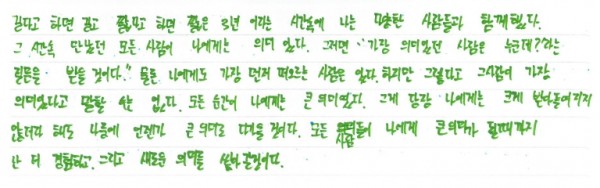 길다고 하면 길고 짧다고 하면 짧은 3년 이라는 시간속에 나는 많은 사람들과 함께했다.
그 시간속 만났던 모든 사람이 나에게는 의미 있다. 그러면 "가장 의미있던 사람은 누군데?라는
질문을 받을 것이다." 물론 나에게도 가장 먼저 떠오르는 사람은 있다. 하지만 그렇다고 그사람이 가장
의미있다고 말할 수는 없다. 모든 순간이 나에게는 큰 의미였다. 그게 당장 나에게는 크게 받아들여지지
않더라 해도 나중에 언젠가 큰 의미로 다가올 것이다. 모든 사람들이 나에게 큰 의미가 될때까지
난 더 경험하고, 그리고 새로운 의미를 쌓아갈것이다.